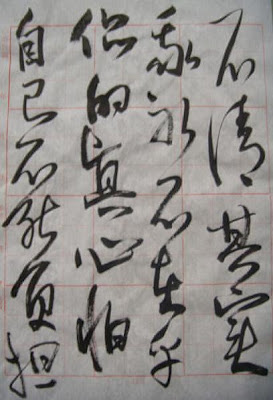 不清其实
我永不在乎
你的真心怕
自己不能负担